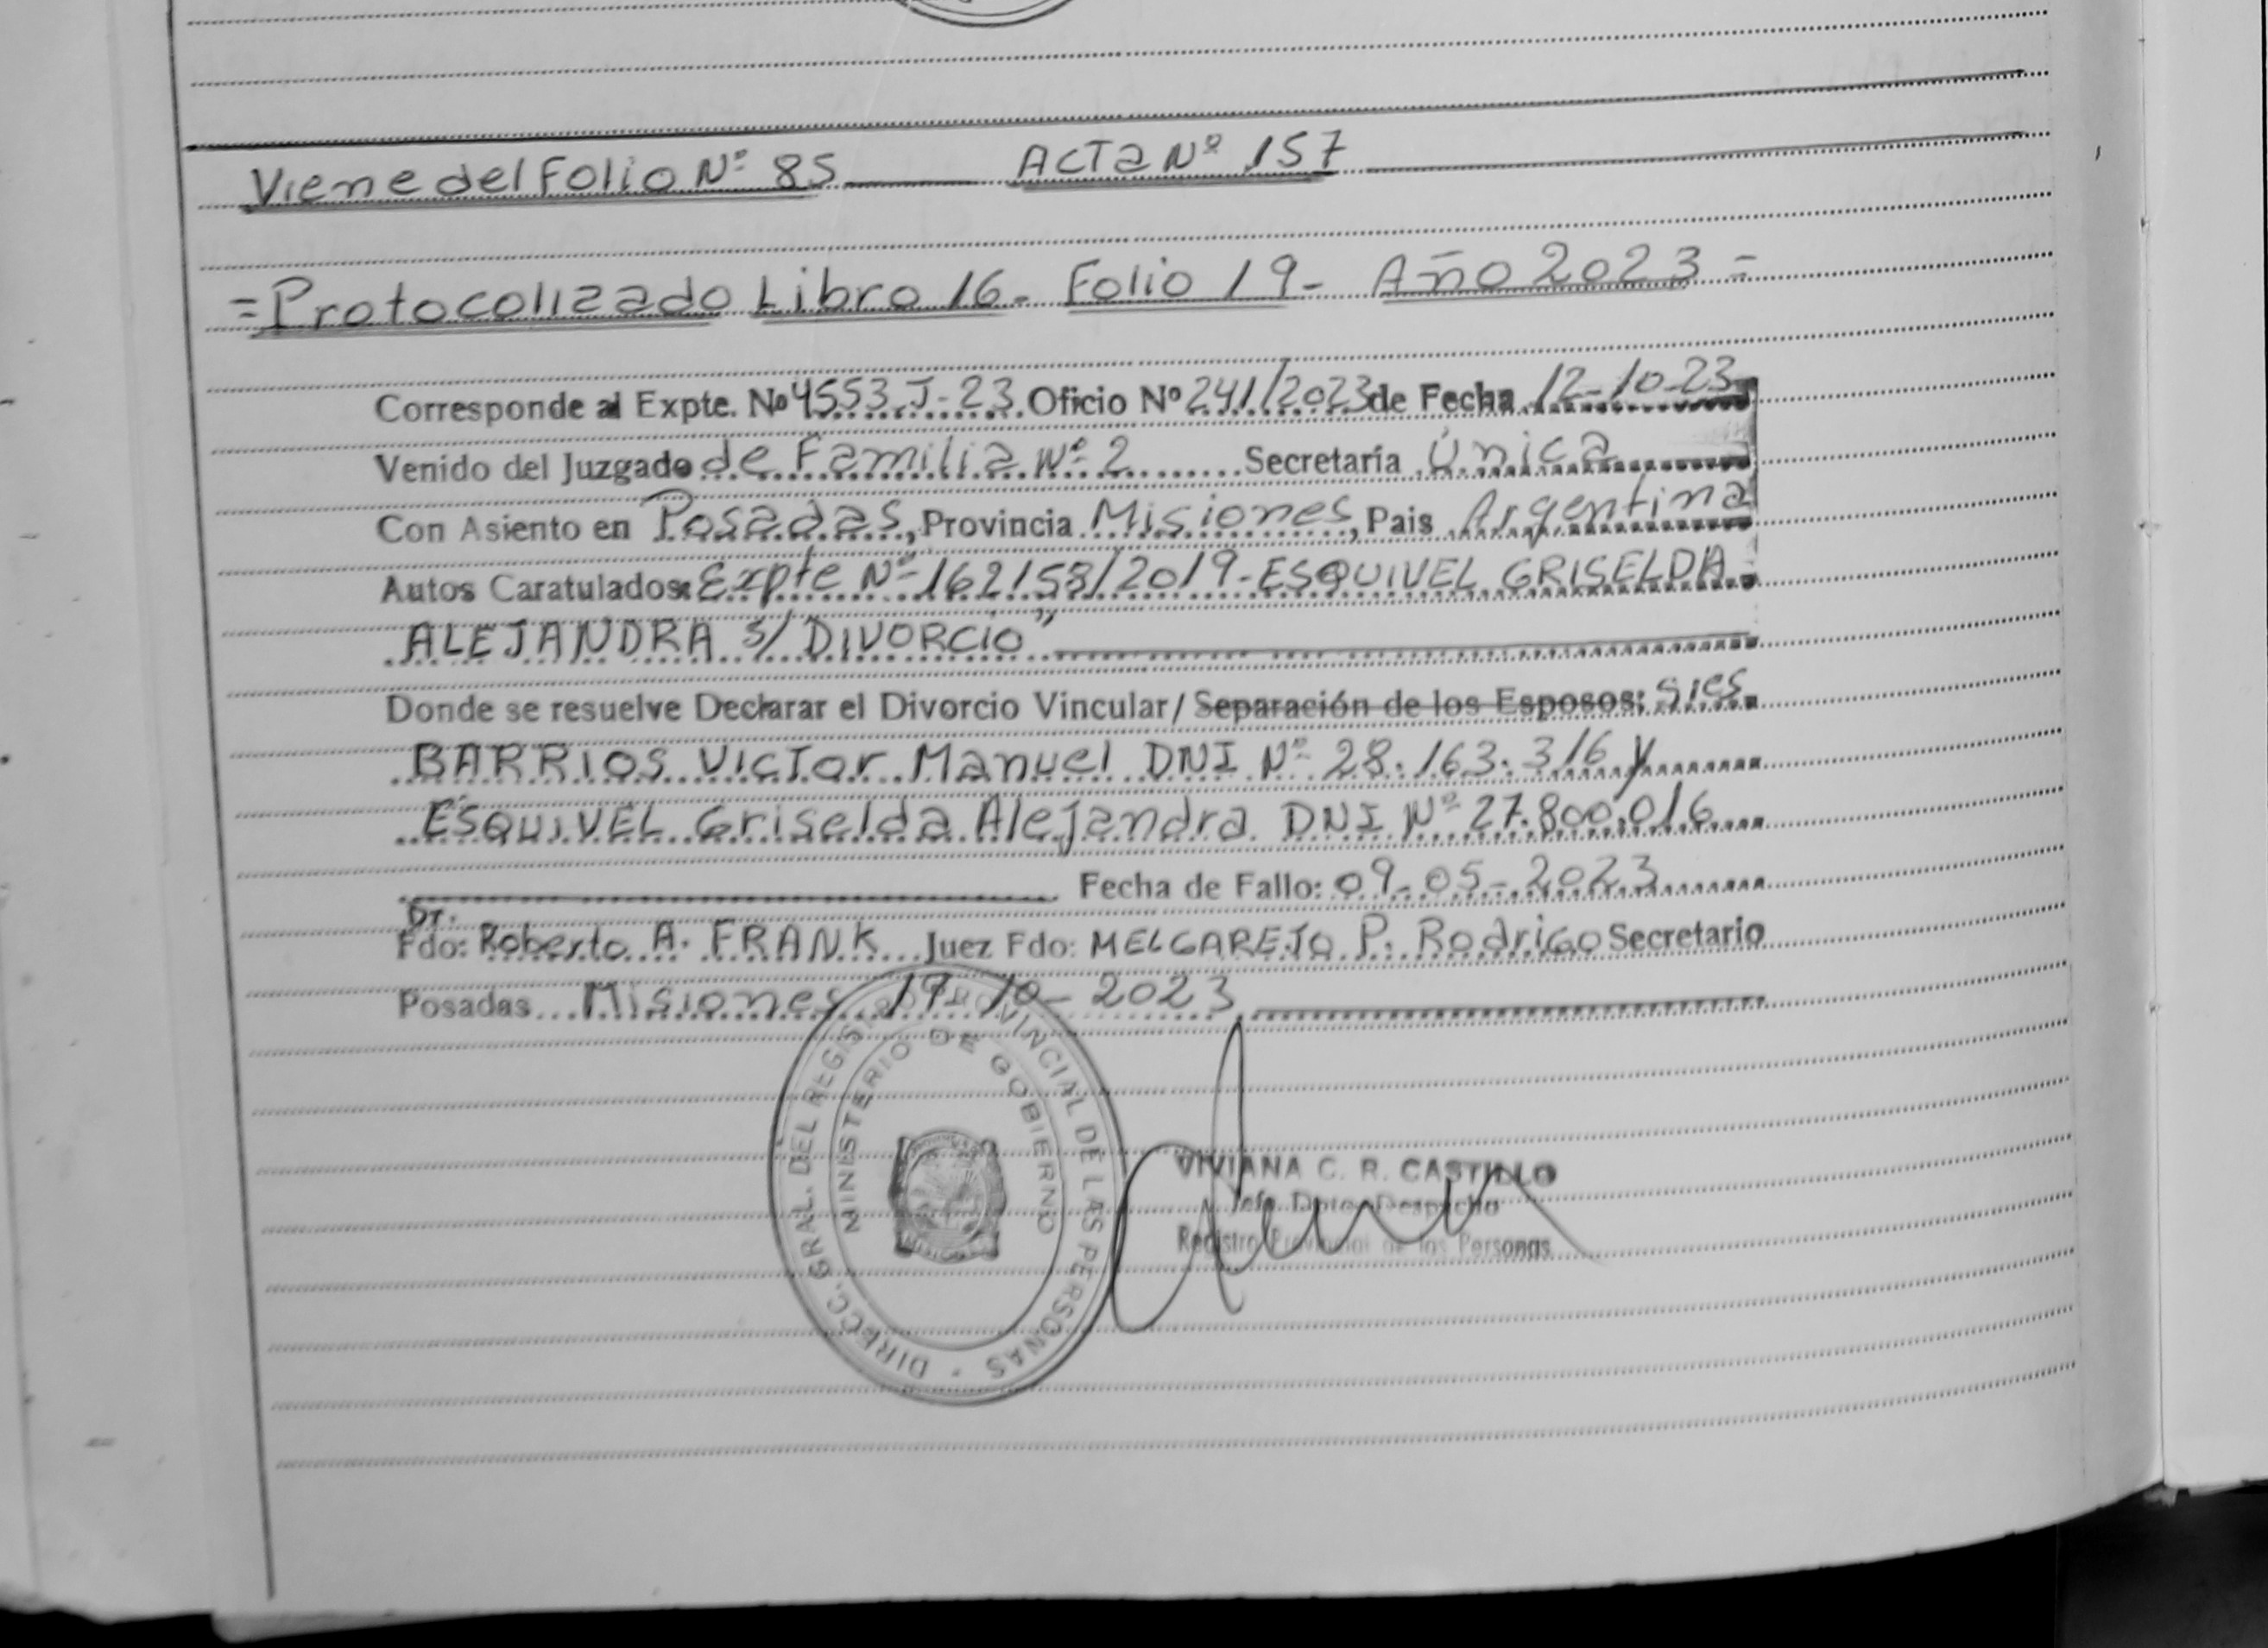 Viene del Folio Nº 85 ACTA Nº 157
= Protocolizado Libro 16 - Folio 19 - Año 2023 =
Corresponde al Expte. Nº 4553 J-23 Oficio Nº 241/2023 de Fecha 12-10-23
Venido del Juzgado de Familia Nº 2 Secretaría Única
Con Asiento en Posadas, Provincia Misiones, Pais Argentina
Autos Caratulados: Expte Nº 162153/2019 - ESQUIVEL GRISELDA
ALEJANDRA S/ DIVORCIO"
Donde se resuelve Declarar el Divorcio Vincular/ Separación de los Esposos: sres.
BARRIOS Victor Manuel DNI Nº 28.163.316 y
ESQUIVEL Griselda Alejandra DNI Nº 27.800.016
Fecha de Fallo: 09-05-2023
Dr.
Fdo: Roberto A. FRANK Juez Fdo: MELGAREJO P. Rodrigo Secretario
Posadas Misiones 19-10-2023
DIRECC. GRAL. DEL REGISTRO PROVINCIAL DE LAS PERSONAS
MINISTERIO DE GOBIERNO
VIVIANA C. R. CASTILLO
Jefe Dpto. Despacho
Registro Provincial de las Personas